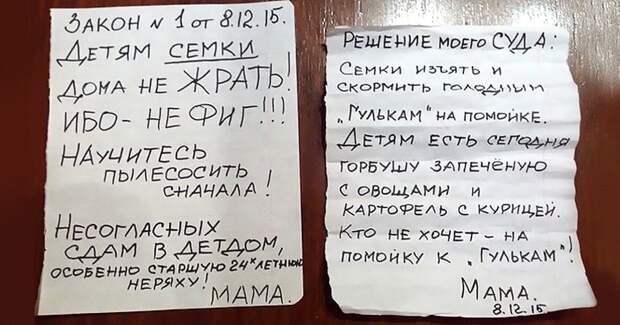 ЗАКОН N 1 ОТ 8.12.15.
ДЕТЯМ СЕМКИ
ДОМА НЕ ЖРАТЬ!
ИБО - НЕ ФИГ!!!
НАУЧИТЕСЬ
ПЫЛЕСОСИТЬ
СНАЧАЛА!
НЕСОГЛАСНЫХ
СДАМ В ДЕТДОМ,
ОСОБЕННО СТАРШУЮ 24х ЛЕТНЮЮ
НЕРЯХУ!
МАМА.
РЕШЕНИЕ МОЕГО СУДА:
СЕМКИ ИЗЪЯТЬ И
СКОРМИТЬ ГОЛОДНЫМ
„ГУЛЬКАМ" НА ПОМОЙКЕ.
ДЕТЯМ ЕСТЬ СЕГОДНЯ
ГОРБУШУ ЗАПЕЧЁНУЮ
С ОВОЩАМИ И
КАРТОФЕЛЬ С КУРИЦЕЙ.
КТО НЕ ХОЧЕТ - НА
ПОМОЙКУ К „ГУЛЬКАМ"!
МАМА.
8.12.15.